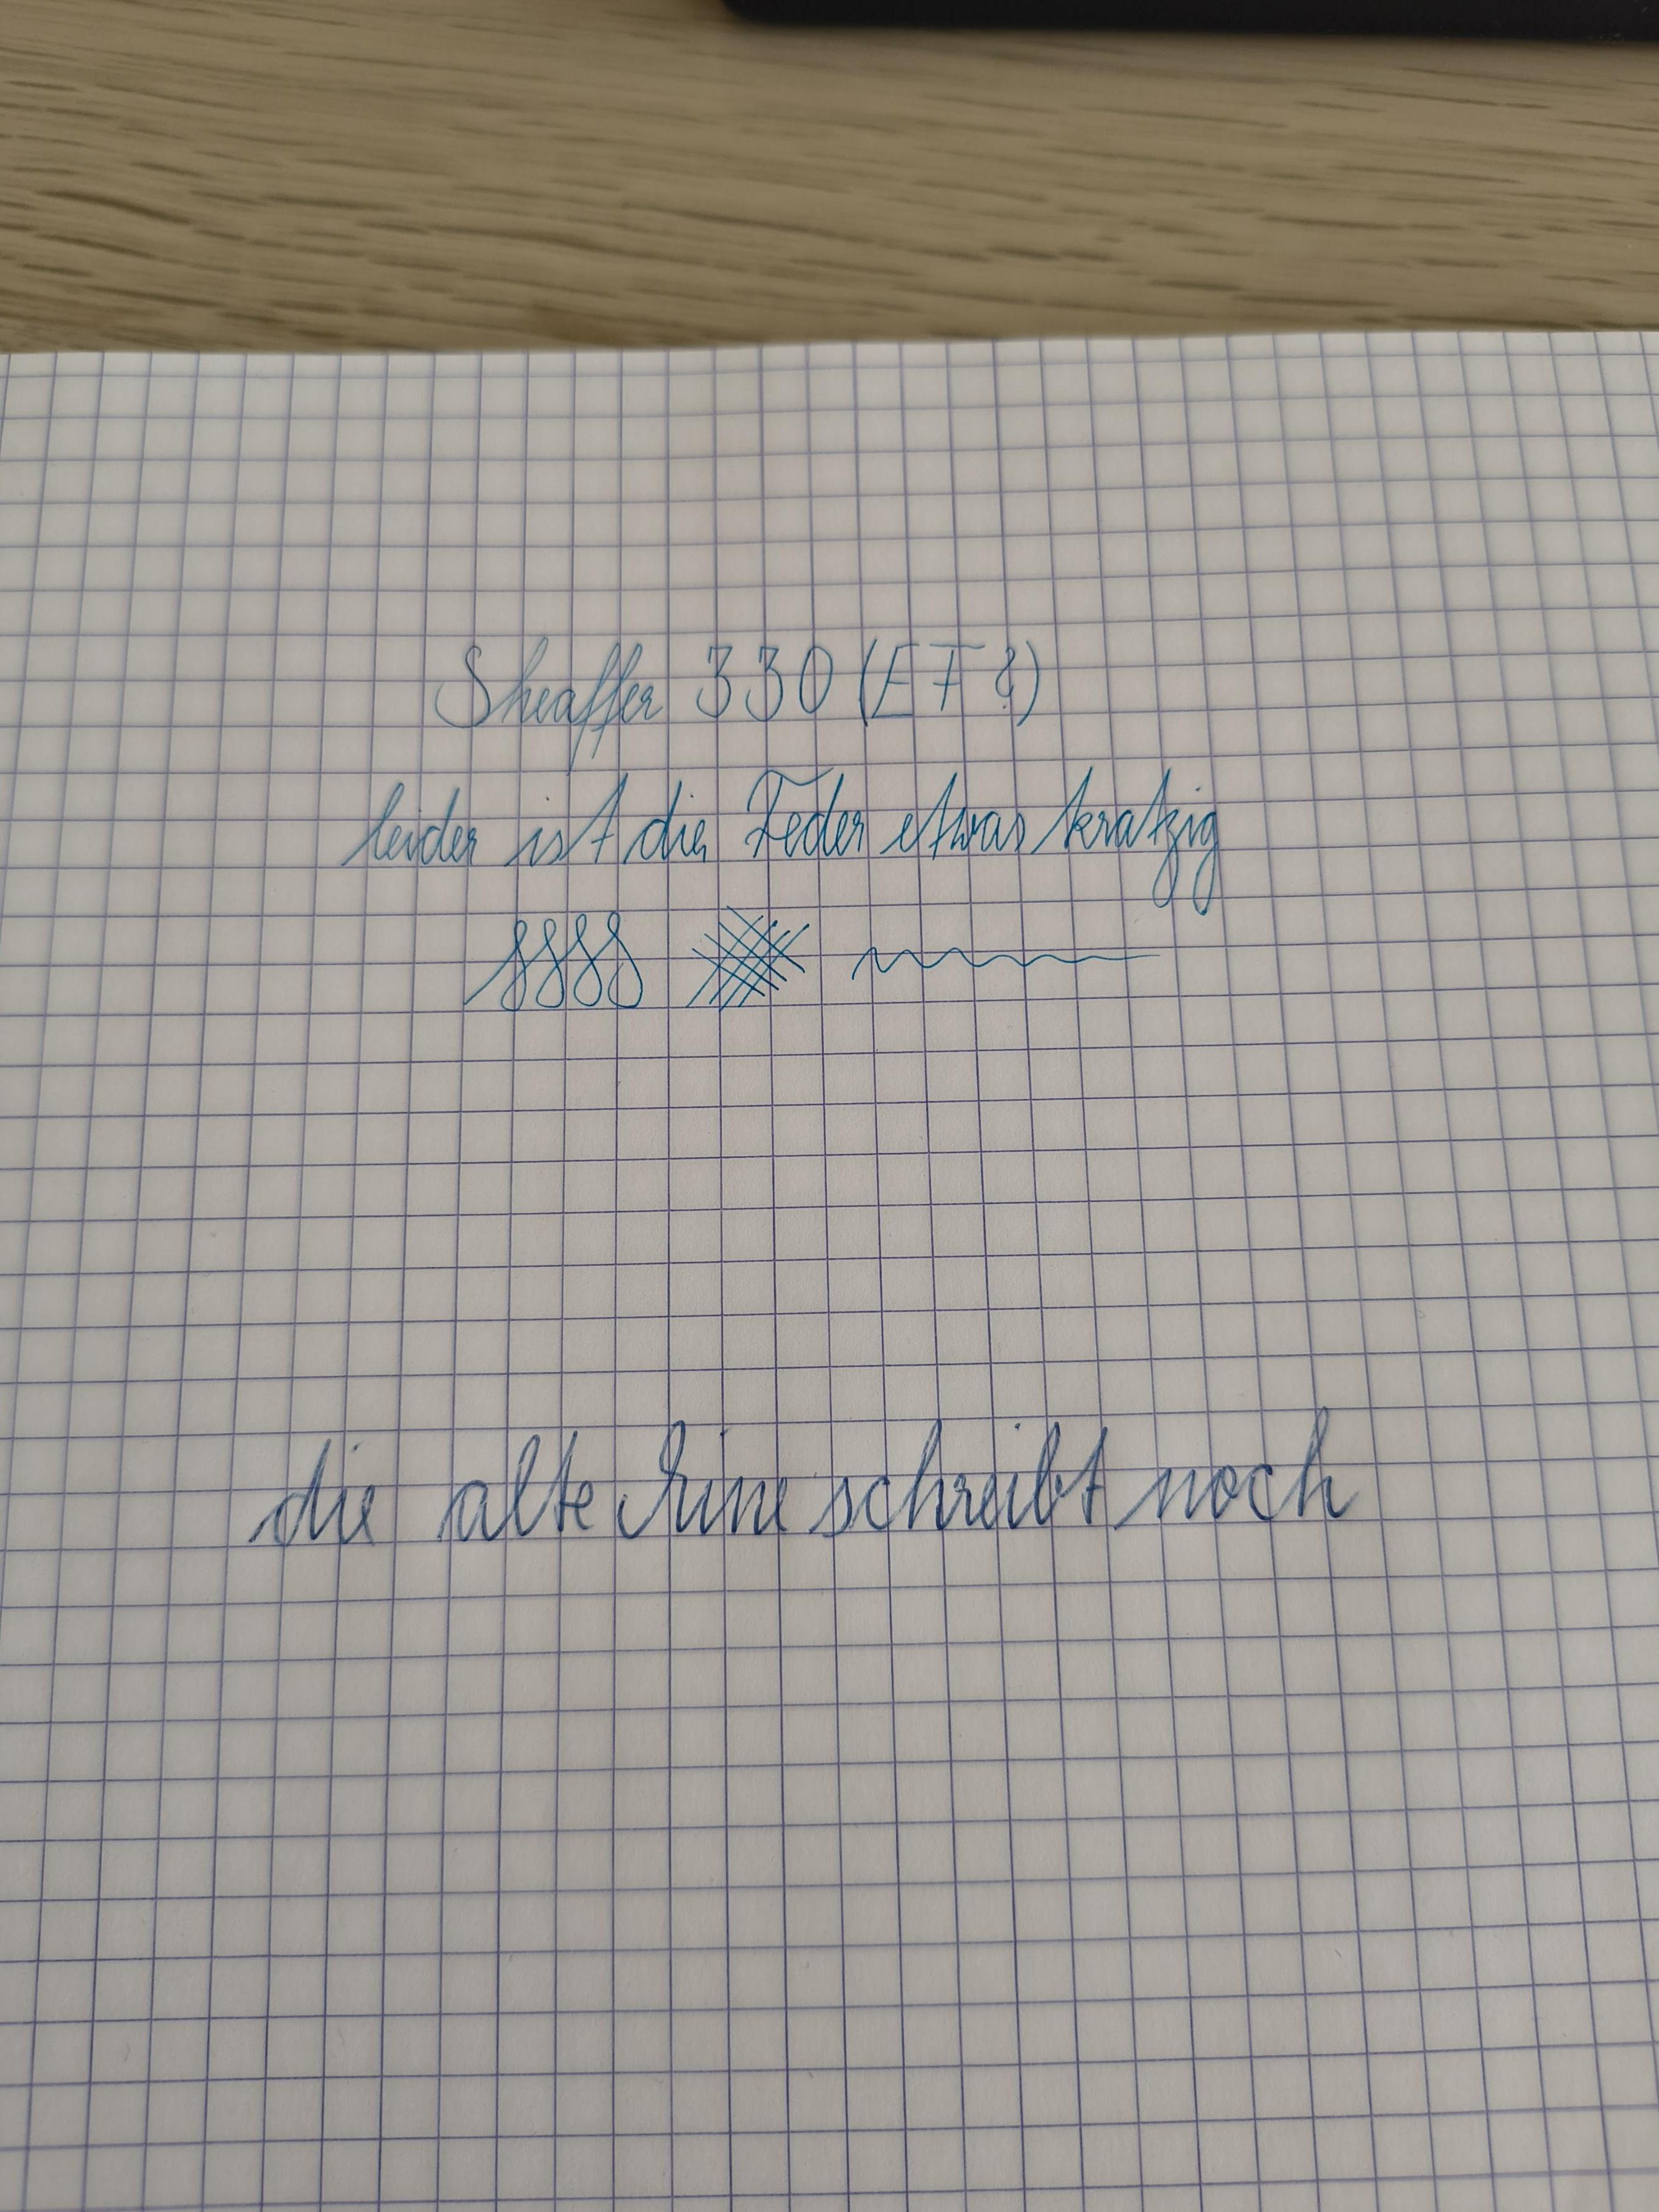 Sheaffer 330 (EF?)
leider ist die Feder etwas kratzig
die alte Mine schreibt noch